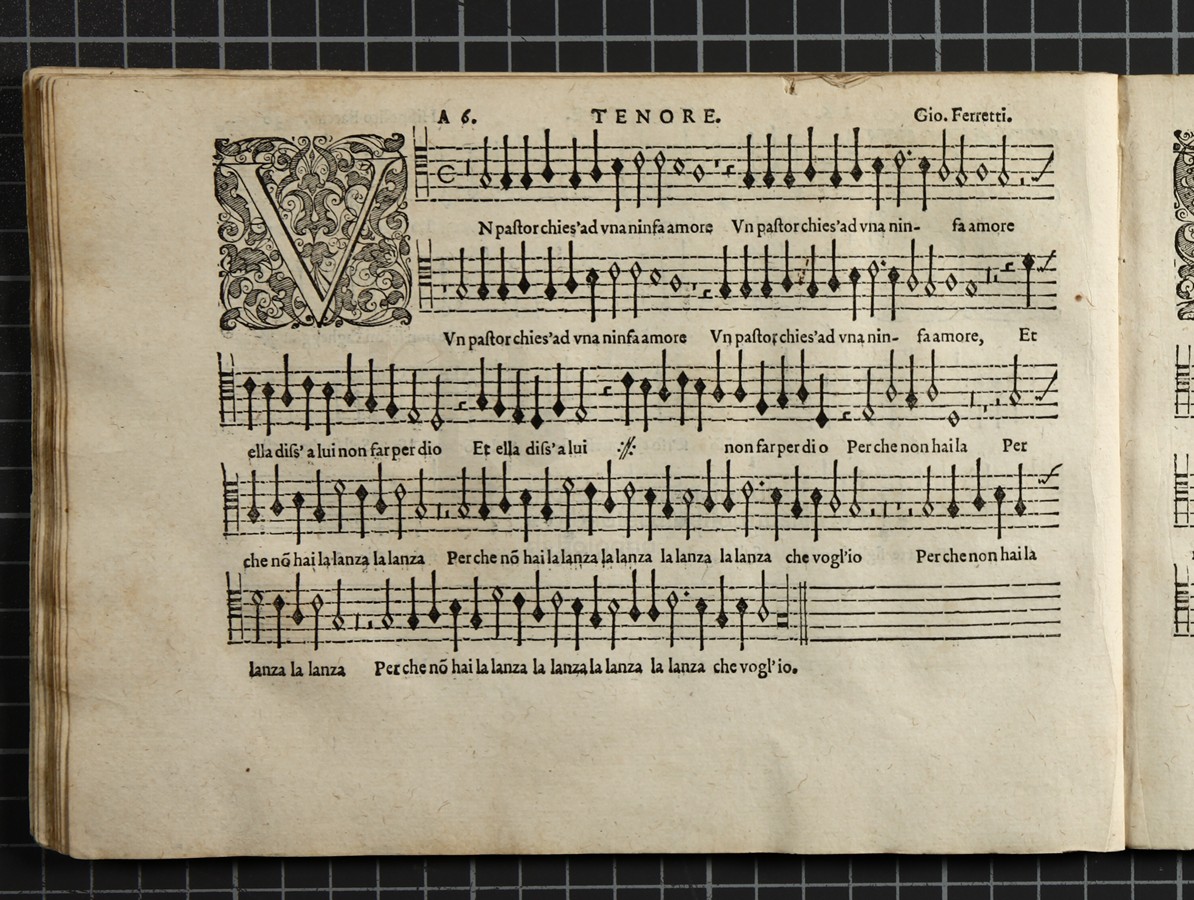 A 6. TENORE. Gio. Ferretti.
VN paſtor chies'ad vna ninfa amore Vn paſtor chies'ad vna nin- fa amore
Vn paſtor chies'ad vna ninfa amore Vn paſtor chies'ad vna nin- fa amore, Et
ella diſs' a lui non far per dio Et ella diſs' a lui :∥: non far per di o Per che non hai la Per
che nõ hai la lanza la lanza Per che nõ hai la lanza la lanza la lanza la lanza che vogl'io Per che non hai la
lanza la lanza Per che nõ hai la lanza la lanza la lanza la lanza che vogl' io.